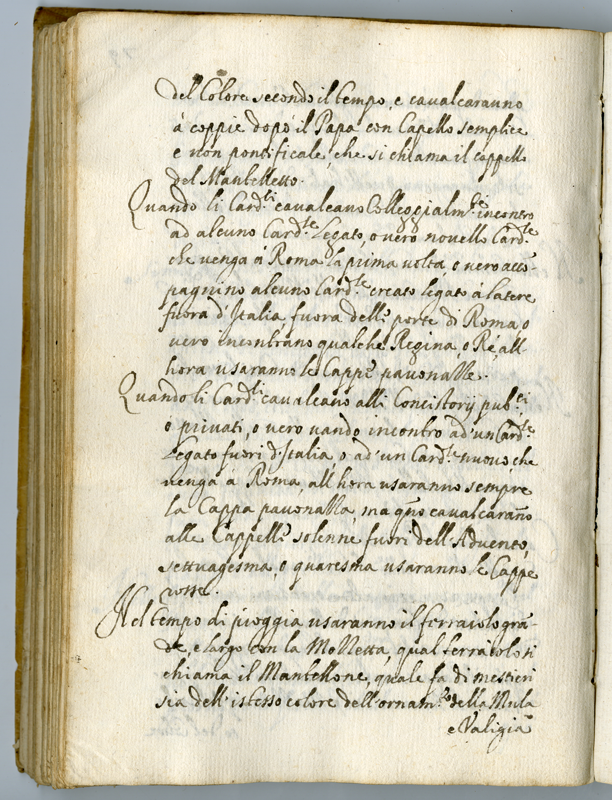 del Colore secondo il tempo, e cavalcaranno
à coppie dopò il Papa con Capello semplice
e non pontificale, che si chiama il cappello
del Mantelletto.
Quando li Card.li cavalcano Colleggialm.te incontro
ad alcuno Card.le Legato, o vero novello Card.le
che venga à Roma la prima volta, o vero acco-
pagnino alcuno Card.le creato legato à latere
fuora d'Italia fuora delle porte di Roma, o
vero incontrano qualche Regina, o Rè, all'
hora usaranno le Cappe pavonazze.
Quando li Card.li cavalcano alli Concistorij pub.ci
o privati, o vero vando incontro ad'un Card.le
Legato fuori d'Italia, o ad'un Card.le nuovo che
venga à Roma, all'hora usaranno sempre
la Cappa pavonazza, ma qño cavalcarano
alle Cappelle solenne fuori dell'Advento,
settuagesma, o quaresma usaranno le Cappe
rosse.
Nel tempo di pioggia usaranno il ferraiolo gra-
de, e largo con la Mozzetta, qual ferraiolo si
chiama il Mantellone, quale fa di mestieri
sia dell'istesso colore dell'ornam.to della Mula
e Valigia